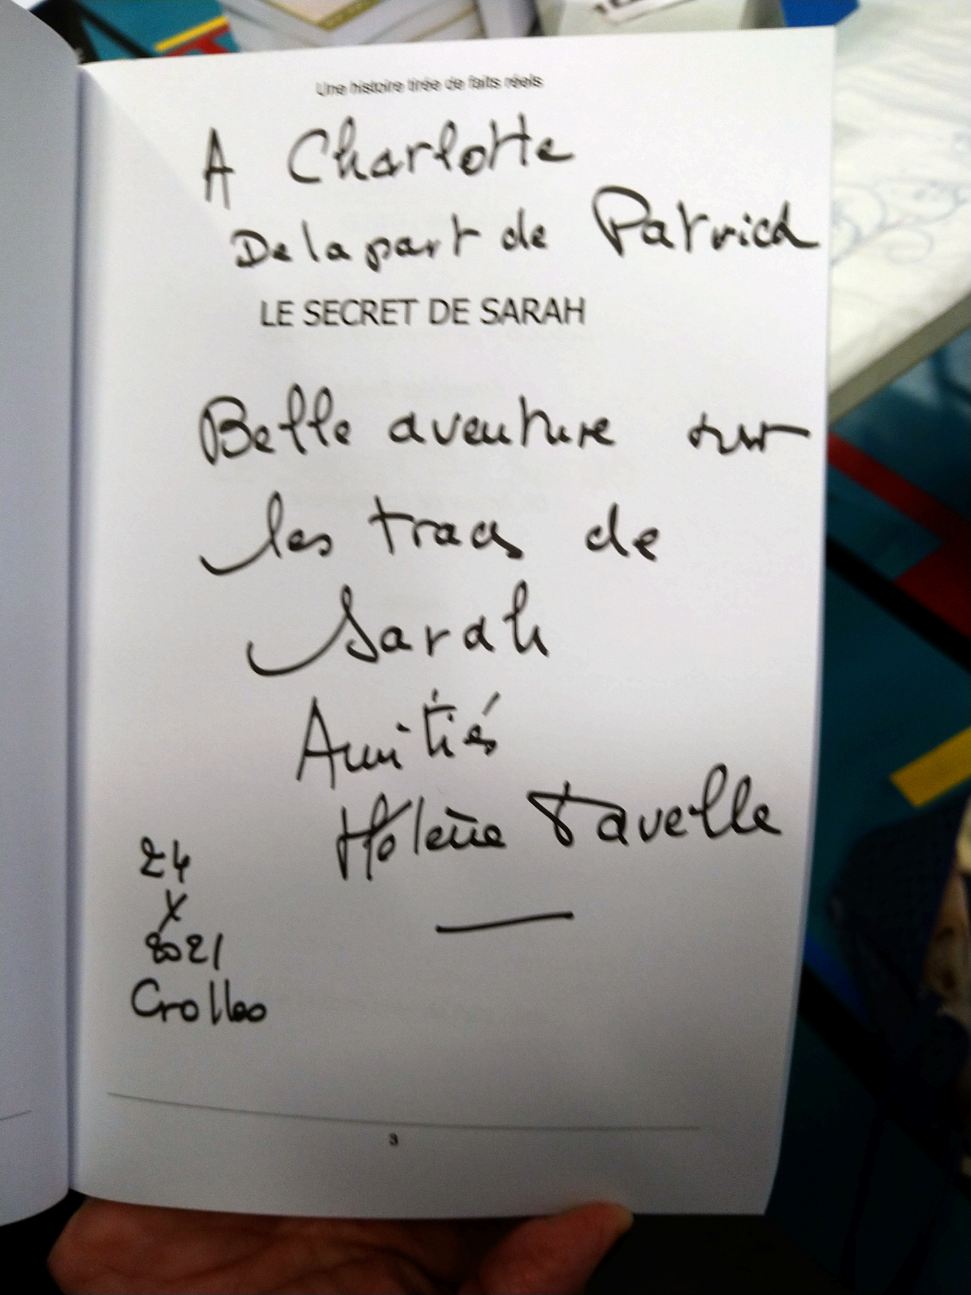 Une histoire tirée de faits réels
A Charlotte
De la part de Patrick
LE SECRET DE SARAH
Belle aventure sur
les traces de
Sarah
Amitiés
Hélène Tavelle
24
X
2021
Crolles
3